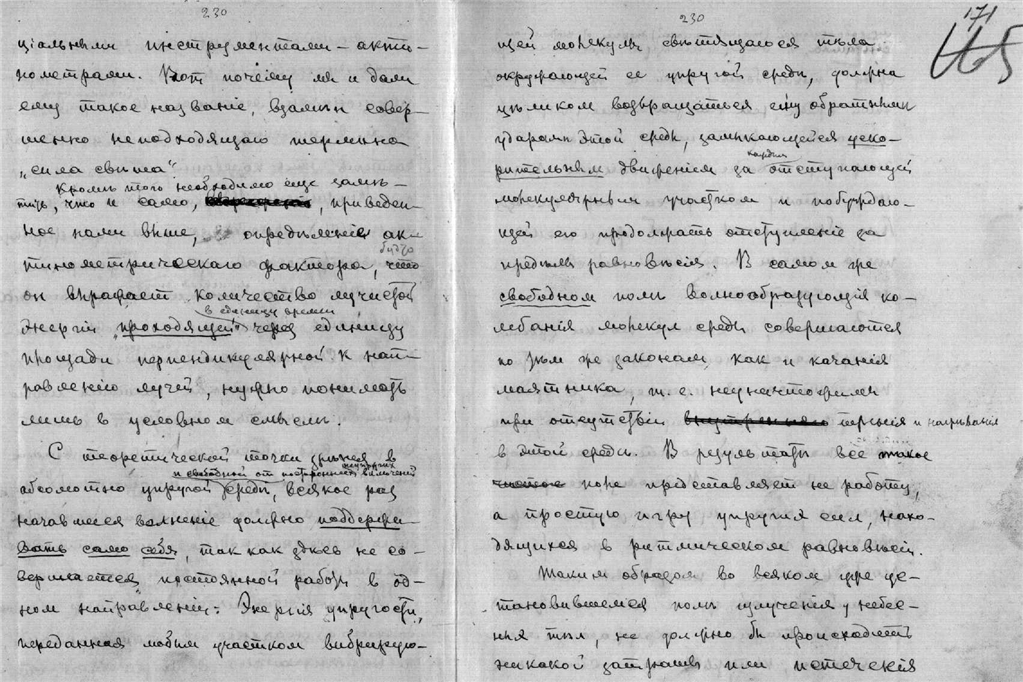 230
ціальными инструментами – акти-
нометрами. Вот почему мы и дали
ему такое названіе, взамѣн совер-
шенно неподходящаго термина
„сила свѣта“
Кромѣ того необходимо еще замѣ-
тить, что и само, приведен-
ное нами выше, опредѣленіе ак-
тинометрическаго фактора, что
будто
он выражает количество лучистой
в единицу времени
энергіи проходящей через единицу
площади перпендикулярной к нап-
равленію лучей, нужно понимать
лишь в условном смыслѣ.
С теоретической точки зрѣнія в
и свободной от посторонних включеній
абсолютно упругой средѣ, всякое раз
начавшееся волненіе должно поддержи-
вать само себя, так как здѣсь не со-
вершается постоянной работы в од-
ном направленіи: Энергія упругости,
переданная любым участком вибрирую-
230
171
щей молекулы свѣтящагося тѣла
окружающей ее упругой средѣ, должна
цѣликом возвращаться ему обратными
ударами этой среды, замыкающейся уско-
рительным движеніем за отступающим
каждым
молекулярным участком и побуждаю-
щей его продолжать отступленіе за
предѣлы равновѣсія. В самом же
свободном полѣ волнообразующія ко-
лебанія молекул среды совершаются
по тѣм же законам, как и качанія
маятника, т. е. неуничтожимы
при отсутствіи тренія и нагрѣванія
в этой средѣ. В результатѣ все такое
поле представляет не работу,
а простую игру упругих сил, нахо-
дящихся в ритмическом равновѣсіи.
Таким образом во всяком уже ус-
тановившемся полѣ излученія у небес-
ных тѣл, не должно бы происходить
никакой затраты или истеченія